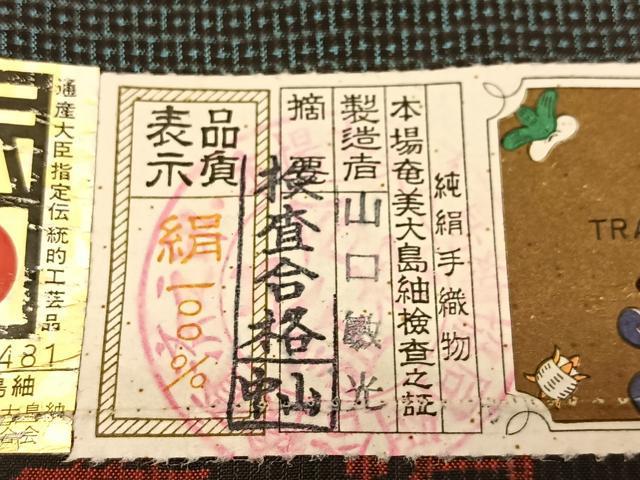 TRA
純絹手織物
本場奄美大島紬檢査之証
製造者 山口敏光
摘要
検査合格
品質
表示
絹一〇〇%
通産大臣指定伝統的工芸品
481
島紬